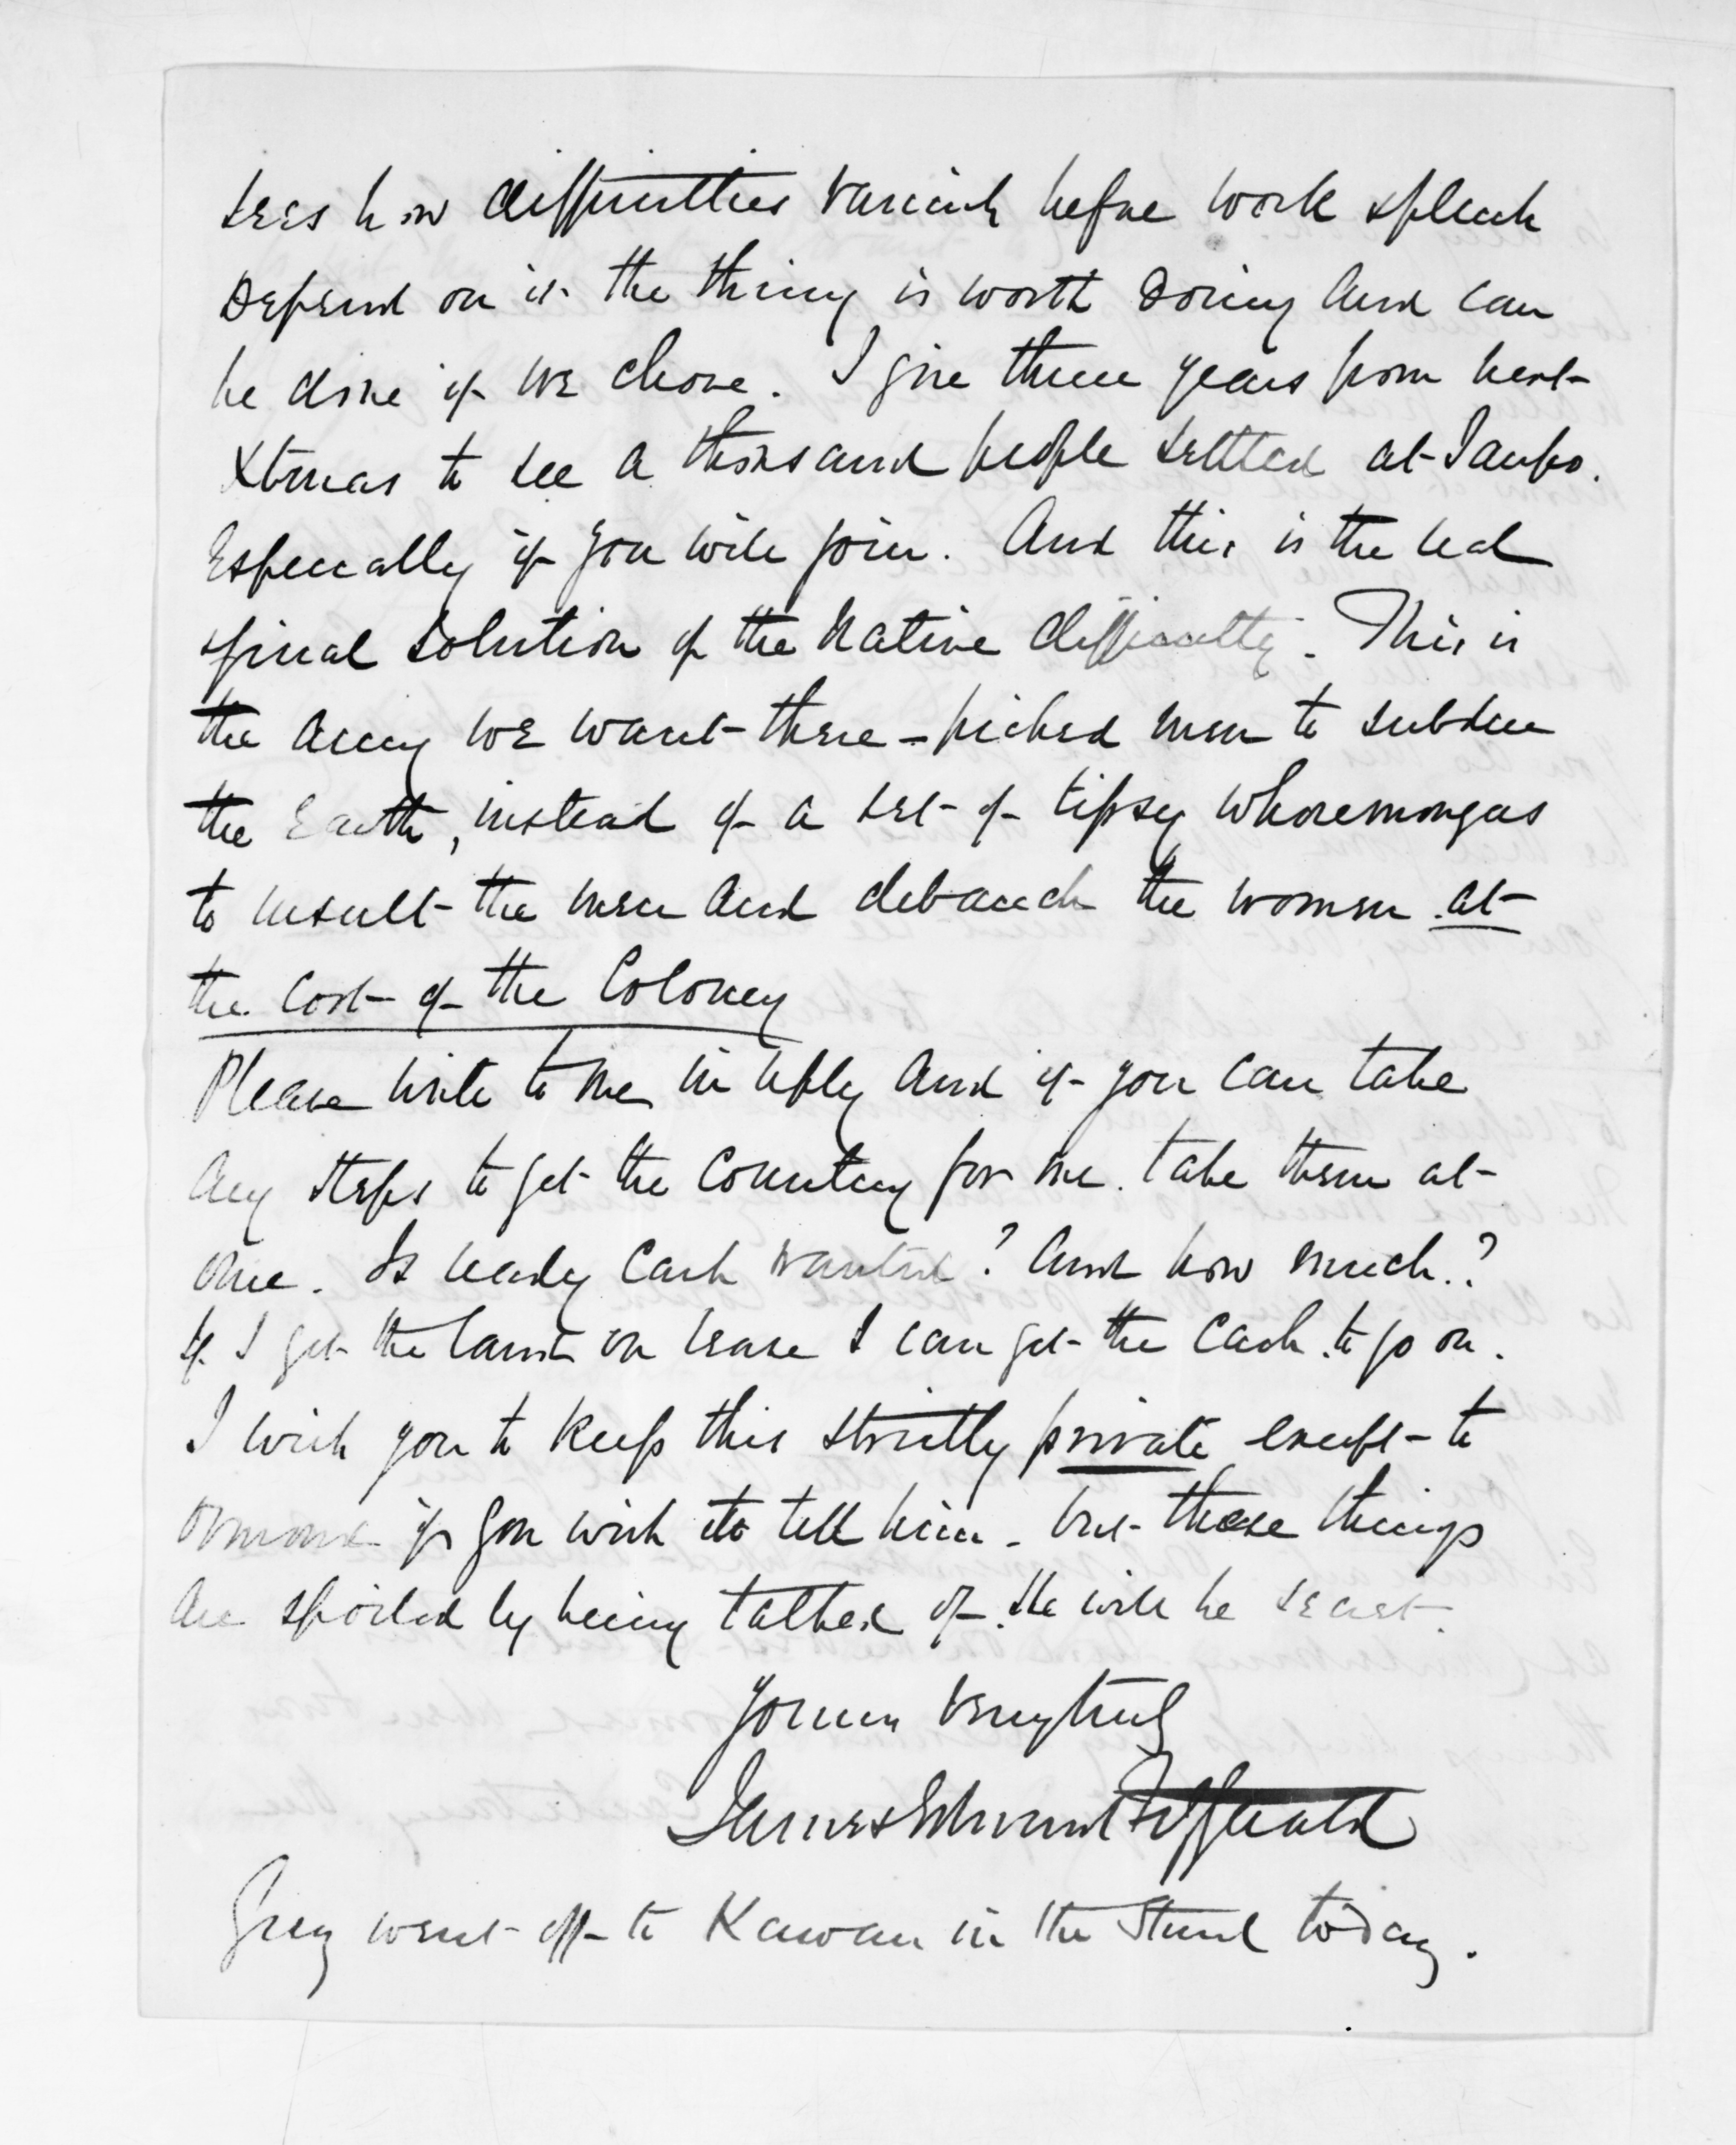 sees how difficulties vanish before work & pluck
Depend on it the thing is worth doing and can
be done if we chose. I give three years from next
Xtmas to see a thousand people settled at Taupo.
Especially if you will join. And this is the real
& final solution of the Native difficulty. This is
the army we want there – picked men to subdue
the Earth, instead of a set of tipsy whoremongers
to insult the men and debauch the women at
the cost of the Colony
Please write to me in reply and if you can take
any steps to get the country for me. take them at
once. Is ready cash wanted? and how much.?
If I get the land on lease I can get the cash to go on.
I wish you to keep this strictly private except to
Ormond if you wish to tell him. but these things
are spoiled by being talked of. He will be secret.
Yours very truly
James Edward FitzGerald
Grey went off to Kawau in the Sturt today.